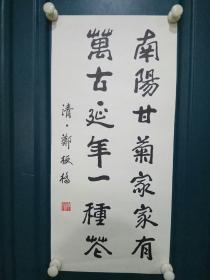 南陽甘菊家家有
萬古延年一種花
清·鄭板橋